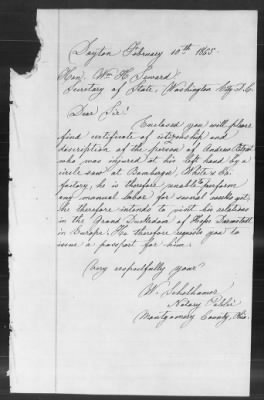 Dayton February 10th 1865
Hon. Wm H. Seward
Secretary of State, Washington City D.C.
Dear Sir!
Enclosed you will please
find certificate of citizenship and
description of the person of Andrew
who was injured at his left hand by a
circle saw at
factory, he is therefore unable to perform
any manual labor for several weeks yet,
he therefore intends to visit his relations
in the Grand Dukedom of Hesse Darmstadt
in Europe; He therefore requests you to
issue a passport for him.
Very respectfully your
W.
Notary Public
Montgomery County, Ohio.